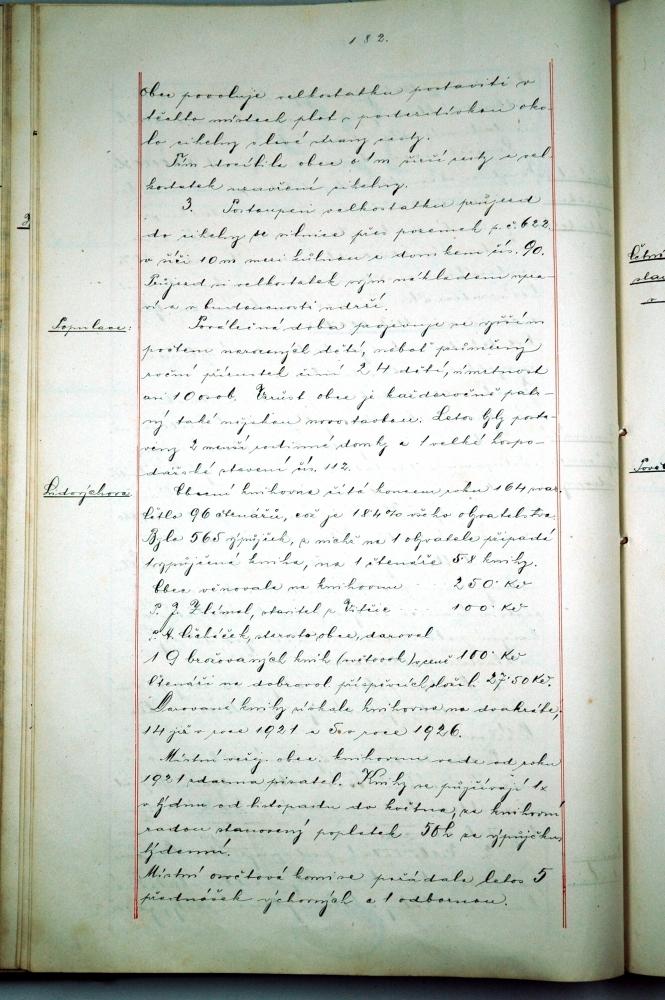 182.
obec povoluje velkostatku postaviti v
těchto místech plot s podezdívkou oko-
lo cihelny s levé strany cesty.
Tím docílila obec o 1 m širší cesty a vel-
kostatek uzavření cihelny.
3. Postoupení velkostatku průjezd
do cihelny ze silnice přes pozemek p. č. 622.
v šíři 10 m mezi kůlnou a domkem čís. 90.
Průjezd si velkostatek svým nákladem upra-
ví a v budoucnosti udrží.
Populace:
Poválečná doba projevuje se vyšším
počtem narozených dětí, neboť průměrný
roční přírustek činí 24 dětí, úmrtnost
asi 10 osob. Vzrůst obce je každoročně patr-
ný také nějakou novostavbou. Letos byly posta-
veny 2 menší rodinné domky a 1 velké hospo-
dářské stavení čís. 112.
Lidovýchova
Obecní knihovna čítá koncem roku 164 svaz.
Četlo 96 čtenářů, což je 18·4% všeho obyvatelstva.
Bylo 565 výpůjček, z nichž na 1 obyvatele připadá
1 vypůjčená kniha, na 1 čtenáře 5·8 knihy.
Obec věnovala na knihovnu 250 Kč
P. J. stavitel z 100 Kč
P. A. starosta obce, daroval
19 brožovaných knih v ceně 100 Kč
Čtenáři na dobrovol. příspěvcích složili 27·50 Kč.
Darované knihy získala knihovna na dvakráte,
14 již v roce 1921 a 5 v roce 1926.
Místní veřej. obec. knihovnu vede od roku
1921 zdarma pisatel. Knihy se půjčují 1x
v týdnu od listopadu do května, za knihovní
radou stanovený poplatek 50 h za výpůjčku
týdenní.
Místní osvětová komise pořádala letos 5
přednášek výchovných a 1 odbornou.